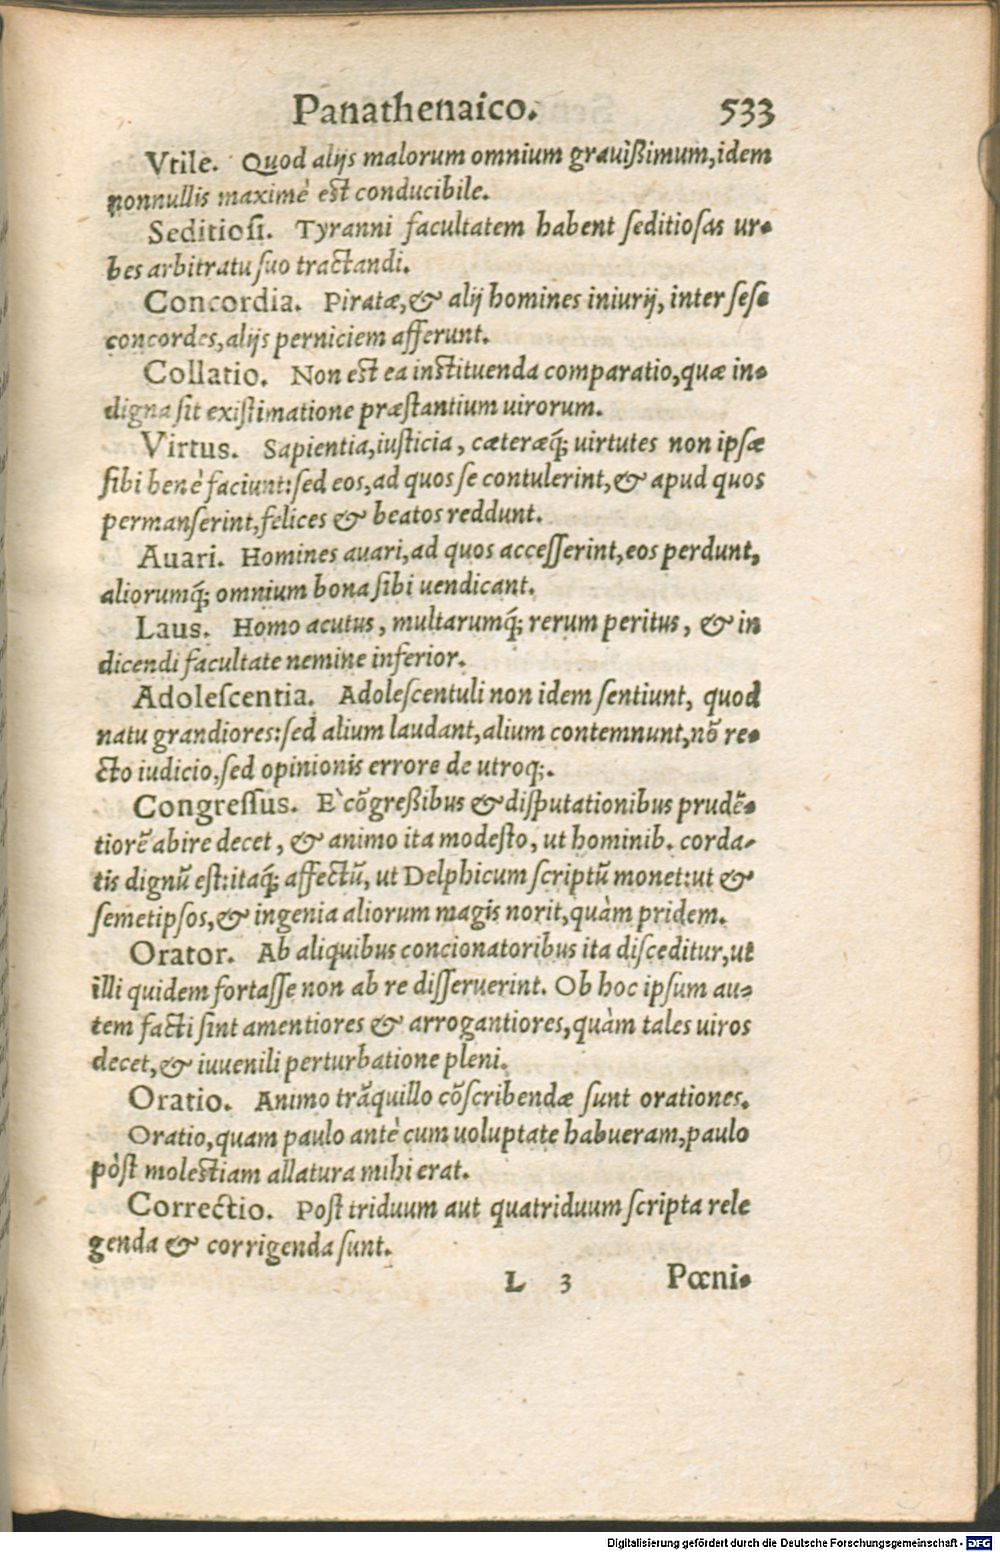 Panathenaico. 533
Vtile. Quod alijs malorum omnium grauißimum, idem
nonnullis maximè est conducibile.
Seditiosi. Tyranni facultatem habent seditiosas ur-
bes arbitratu suo tractandi.
Concordia. Piratæ, & alij homines iniurij, inter sese
concordes, alijs perniciem afferunt.
Collatio. Non est ea instituenda comparatio, quæ in-
digna sit existimatione præstantium uirorum.
Virtus. Sapientia, iusticia, cæteræq́; uirtutes non ipsæ
sibi benè faciunt: sed eos, ad quos se contulerint, & apud quos
permanserint, felices & beatos reddunt.
Auari. Homines auari, ad quos accesserint, eos perdunt,
aliorumq́; omnium bona sibi uendicant.
Laus. Homo acutus, multarumq́; rerum peritus, & in
dicendi facultate nemine inferior.
Adolescentia. Adolescentuli non idem sentiunt, quod
natu grandiores: sed alium laudant, alium contemnunt, nõ re-
cto iudicio, sed opinionis errore de utroq;.
Congressus. E` cõgreßibus & disputationibus prudẽ-
tiorẽ abire decet, & animo ita modesto, ut hominib. corda-
tis dignũ est: itaq́; affectũ, ut Delphicum scriptũ monet: ut &
semetipsos, & ingenia aliorum magis norit, quàm pridem.
Orator. Ab aliquibus concionatoribus ita disceditur, ut
illi quidem fortasse non ab re disseruerint. Ob hoc ipsum au-
tem facti sint amentiores & arrogantiores, quàm tales uiros
decet, & iuuenili perturbatione pleni.
Oratio. Animo trãquillo cõscribendæ sunt orationes.
Oratio, quam paulo antè cum uoluptate habueram, paulo
pòst molestiam allatura mihi erat.
Correctio. Post triduum aut quatriduum scripta rele
genda & corrigenda sunt.
L 3 Pœni-
Digitalisierung gefördert durch die Deutsche Forschungsgemeinschaft - DFG